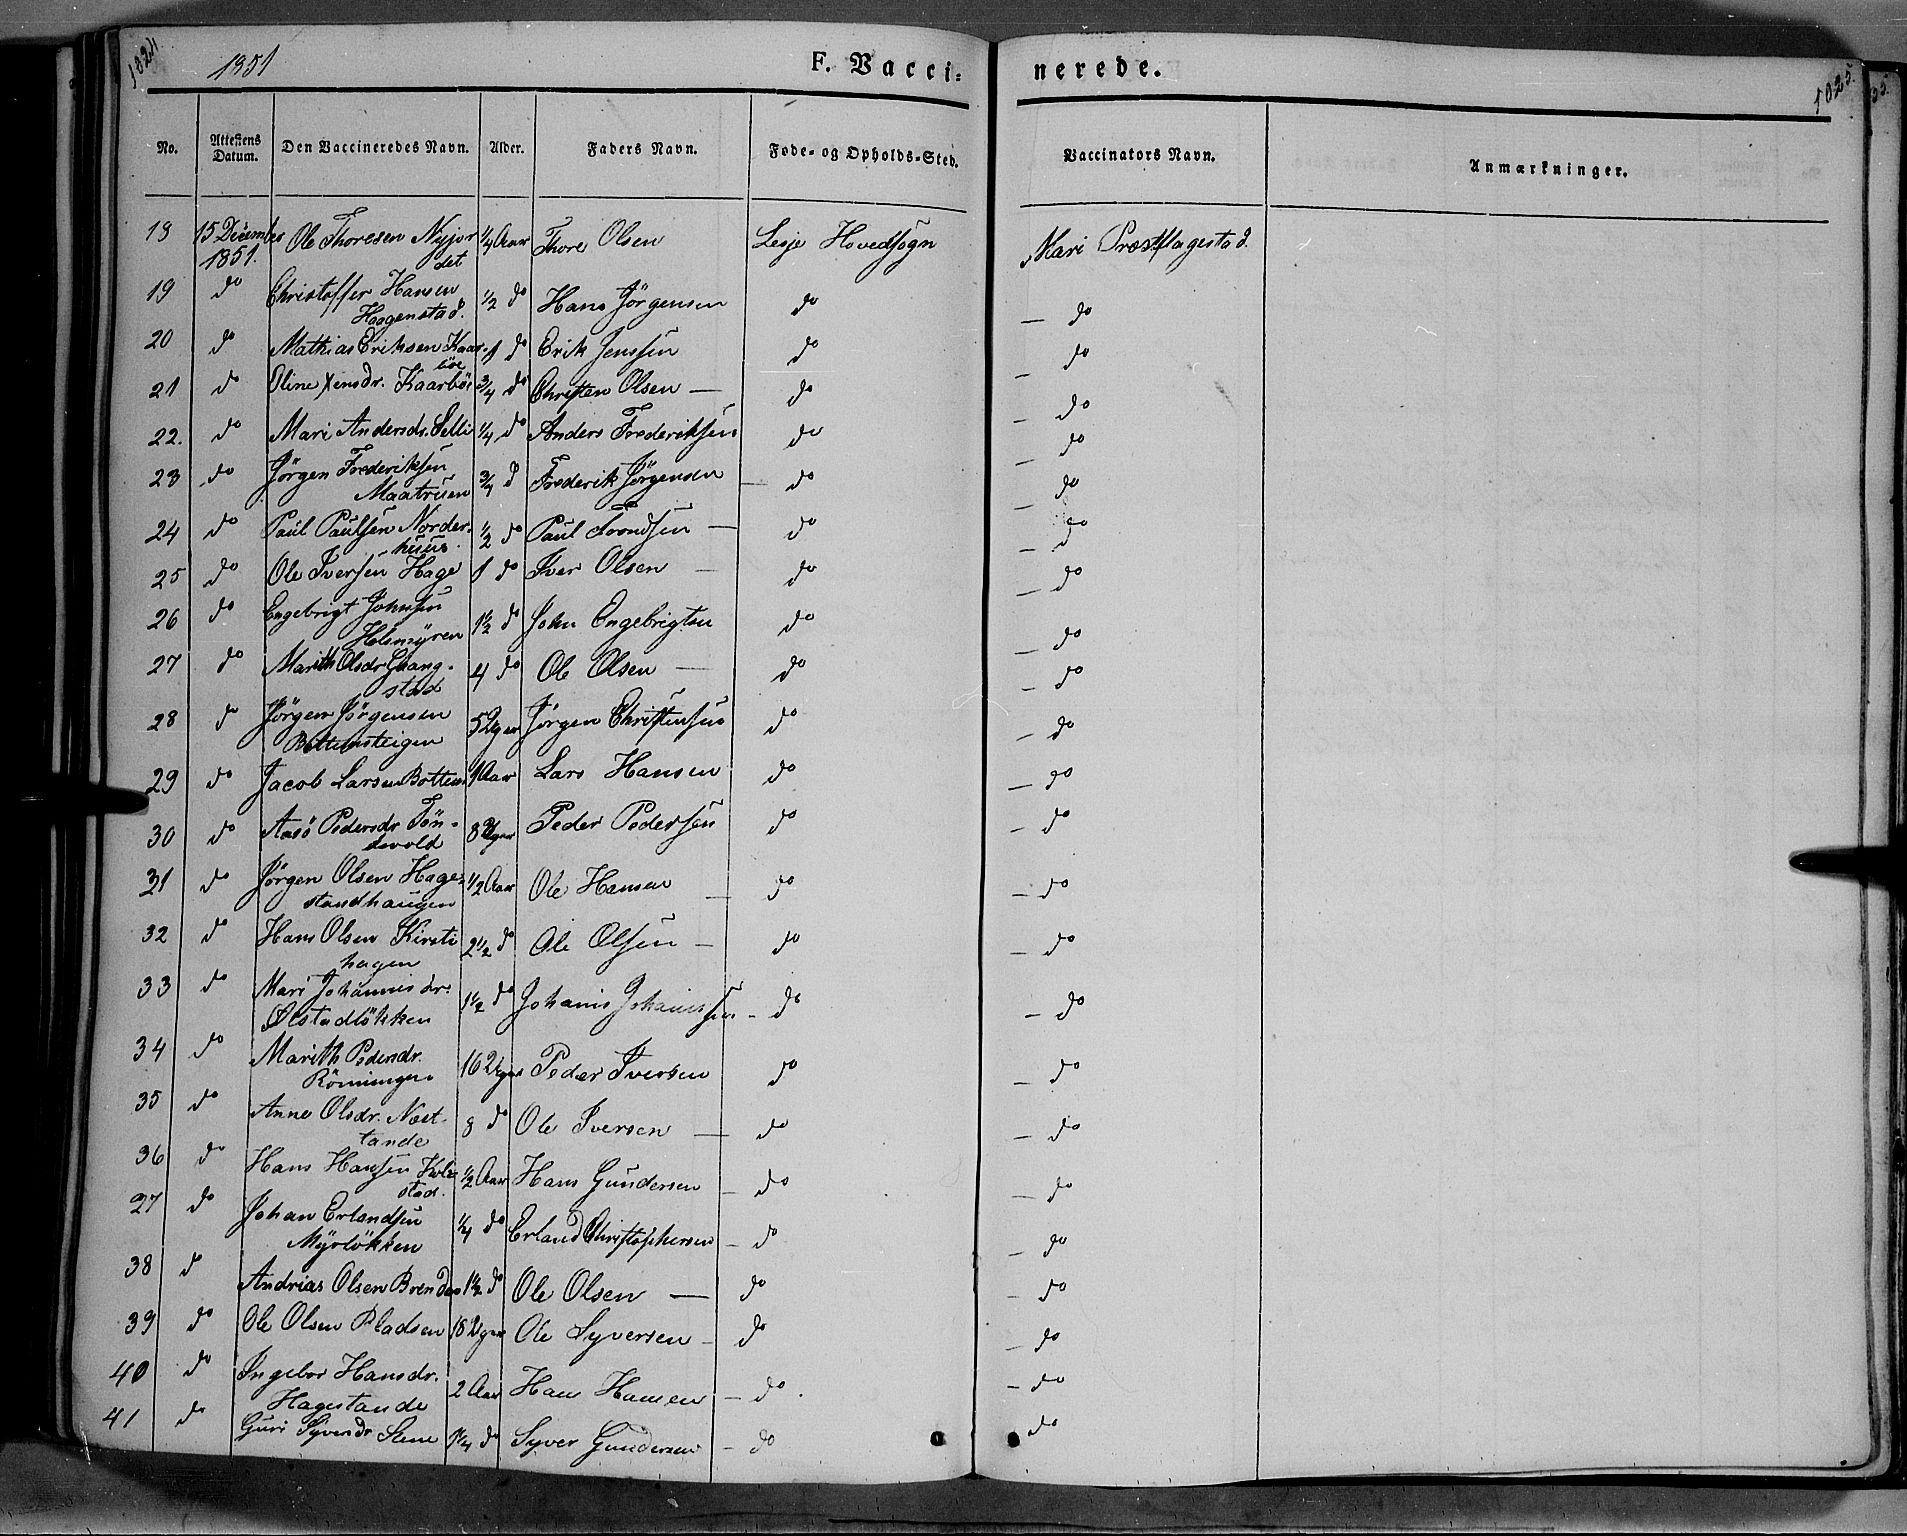 1024
1851
F. Vacci=
nerede.
1025.
No.
Attestens Datum.
Den Vaccineredes Navn.
Alder.
Faders Navn.
Føde- og Opholds-Sted.
Vaccinators Navn.
Anmærkninger.
18 15 December 1851. Ole Thoresen Nyjordet 1/4 Aar Thore Olsen Lesje Hovedsogn Mari Presthagestad.
19 do Christoffer Hansen Haagenstad. 1/2 do Hans Jörgensen do — do
20 do Mathias Eriksen Kaarböe 1 do Erik Jenssen do — do
21 do Oline Xensdr. Kaarböe 3/4 do Christen Olsen — do — do
22. do Mari Andersdr. Selli 1/4 do Anders Frederiksen do — do
23 do Jörgen Frederiksen 3/4 d Frederik Jörgensen — do — do
24 do Paul Paulsen Norderhuus. 1/2 do Paul Trondsen — do — do
25 do Ole Iversen Hage 1 do Iver Olsen — do — do
26 do Engebrigt Johnsen Holsmyren 1 1/2 do John Engebrigtsen do — do
27 do Marith Olsdr 4 do Ole Olsen — do — do
28 do Jörgen Jörgensen 5 Uger Jörgen Christensen do — do
29 do Jacob Larsen Bottem 1 Aar Lars Hansen do — do
30 do Pedersdr Töndevold 8 Uger Peder Pedersen do — do
31 do Jörgen Olsen Hagestandhaugen 1/2 Aar Ole Hansen — do — do
32 do Hans Olsen Kirstihagen 2 1/2 do Ole Olsen — do — do
33 do Mari Johannisdr. 1 1/2 do Johanis Johanissen — do — do
34 do Marith Pedersdr. Römmingen 16 Uger Peder Iversen do — do
35 do Anne Olsdr. 8 do Ole Iversen — do — do
36 do Hans Hansen Kolstad. 1/2 Aar Hans Gundersen — do — do
27 do Johan Erlandsen Myrlökken 1/4 do Erland Christophersen — do — do
38 d Andrias Olsen Brenden 1 1/2 do Ole Olsen — do — do
39 do Ole Olsen Pladsen 18 Uger Ole Syversen — do — do
40 do Ingebor Hansdr. Hagestande 2 Aar Hans Hansen — do. — do
41 do Guri Syversdr Stene 1/4 do Syver Gundersen — do — do